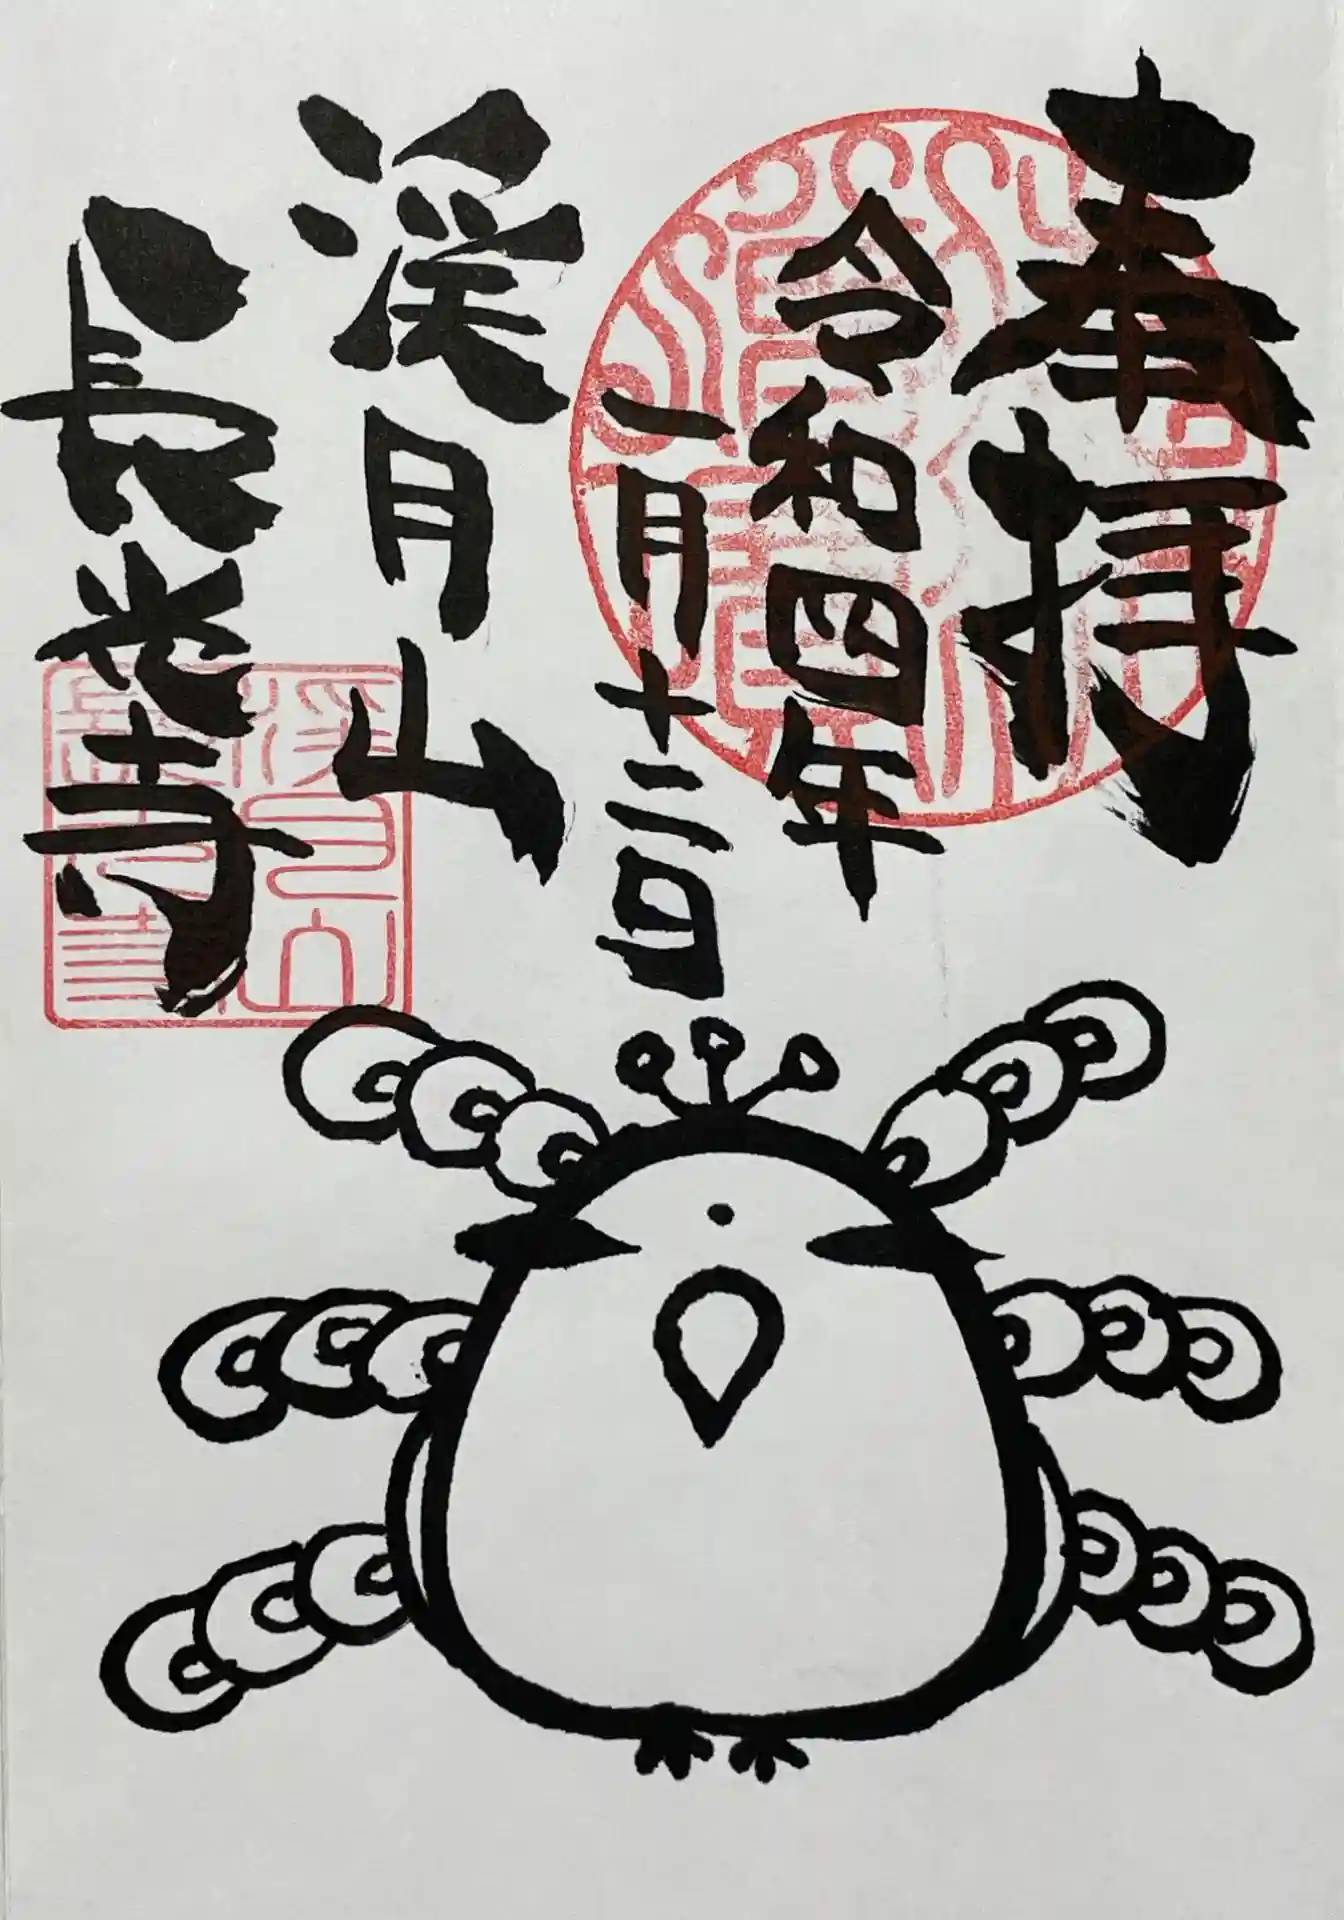 奉拝
令和四年
一月十二日
渓月山
長光寺